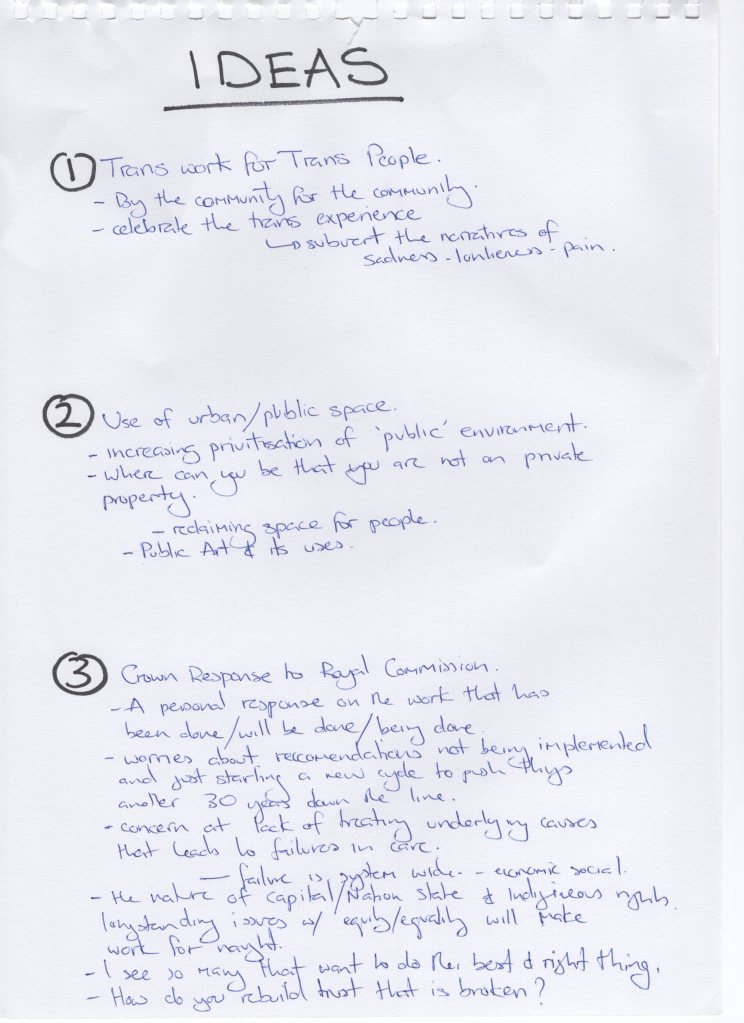 IDEAS
① Trans work for Trans People.
- By the community for the community.
- celebrate the trans experience
↳ subvert the narratives of
sadness - lonlieness - pain.
② Use of urban/public space.
- increasing privitisation of 'public' environment.
- where can you be that you are not on private
property.
- reclaiming space for people.
- Public Art & its uses.
③ Crown Response to Royal Commission.
- A personal response on the work that has
been done/will be done/being done
- worries about reccomendations not being implemented
and just starting a new cycle to push things
another 30 years down the line.
- concern at lack of treating underlying causes
that leads to failures in care.
— failure is system wide. - economic social.
- the nature of capital/Nation State & Indigineous rights.
longstanding issues w/ equity/equality will make
work for naught.
- I see so many that want to do the best & right thing.
- How do you rebuild trust that is broken?